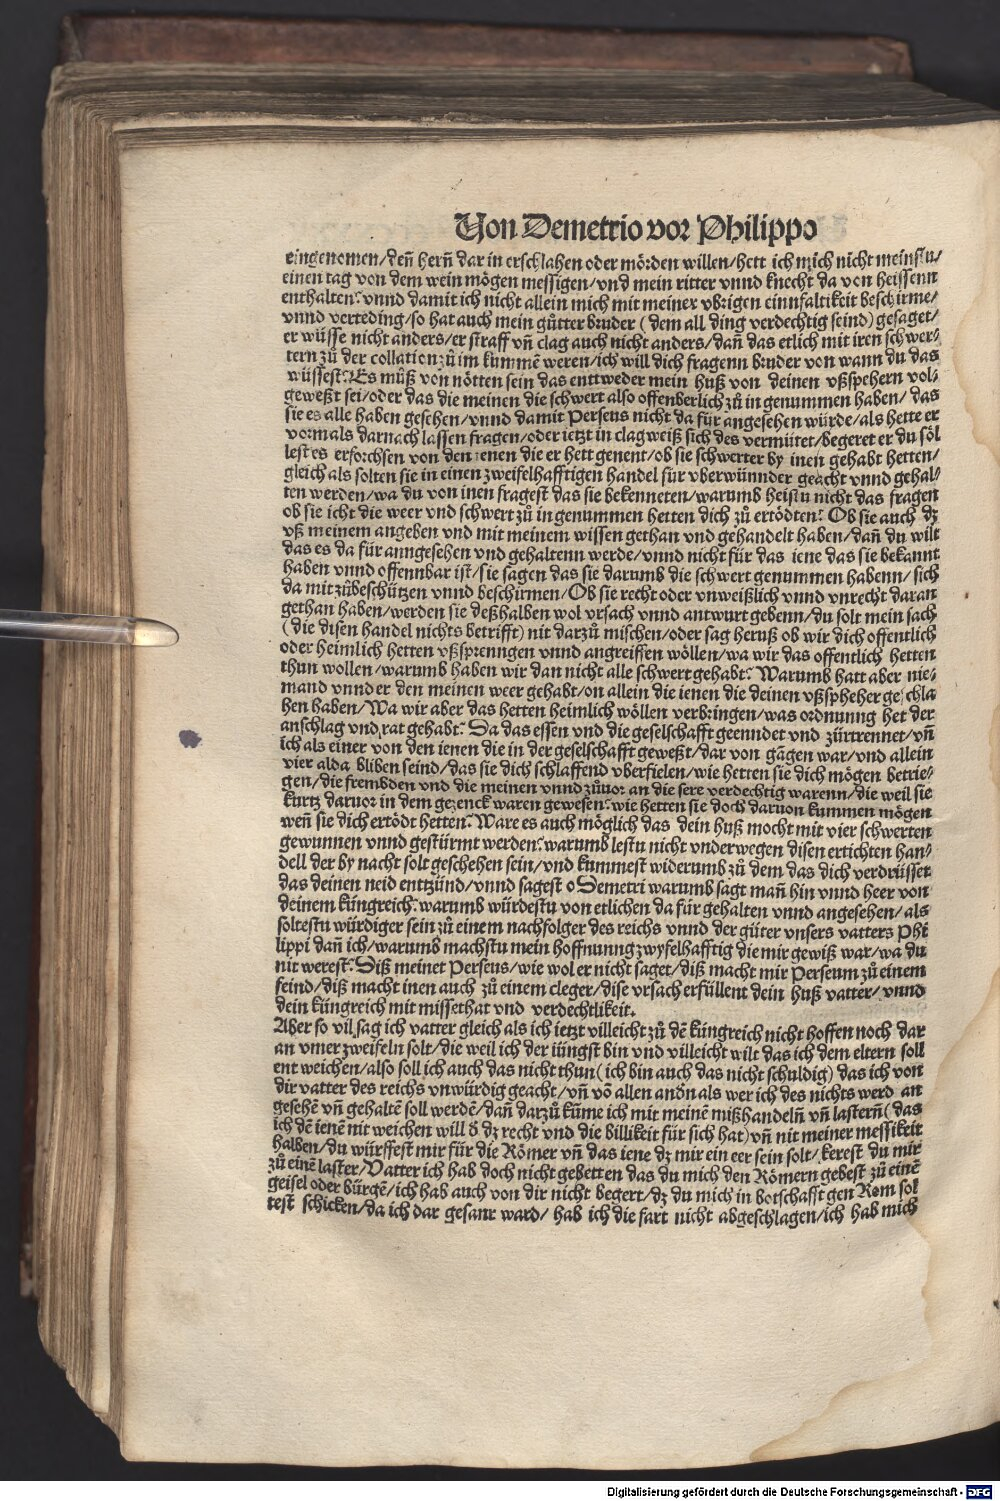 Von Demetrio vor Philippo
eingenomen/deñ herñ dar in erschlahen oder mörden willen/hett ich mich nicht meins
einen tag von dem wein mögen messigen/vnd mein ritter vnnd knecht da von heissenn
enthalten? vnnd damit ich nicht allein mich mit meiner vbrigen einnfaltikeit beschirme/
vnnd verteding/so hat auch mein gůtter bruder (dem all ding verdechtig seind) gesaget/
er wüsse nicht anders/er straff vñ clag auch nicht anders/dañ das etlich mit iren schwer⸗
tern zů der collation zů im kummē weren/ich will dich fragenn bruder von wann du das
wüssest? Es můß von nötten sein das enttweder mein huß von deinen vßspehern vol⸗
geweßt sei/oder das die meinen die schwert also offenberlich zů in genummen haben/das
sie es alle haben gesehen/vnnd damit Perseus nicht da für angesehen würde/als hette er
vormals darnach lassen fragen/oder ietzt in clagweiß sich des vermütet/begeret er du söl
lest es erforchsen von den ienen die er hett genent/ob sie schwerter by inen gehabt hetten/
gleich als solten sie in einen zweifelhafftigen handel für vberwünnder geacht vnnd gehal⸗
ten werden/wa du von inen fragest das sie bekenneten/warumb heistu nicht das fragen
ob sie icht die weer vnd schwert zů in genummen hetten dich zů ertödten? Ob sie auch dz
vß meinem angeben vnd mit meinem wissen gethan vnd gehandelt haben/dañ du wilt
das es da für anngesehen vnd gehaltenn werde/vnnd nicht für das iene das sie bekannt
haben vnnd offennbar ist/sie sagen das sie darumb die schwert genummen habenn/sich
da mit zůbeschützen vnnd beschirmen/Ob sie recht oder vnweißlich vnnd vnrecht daran
gethan haben/werden sie deßhalben wol vrsach vnnd antwurt gebenn/du solt mein sach
(die disen handel nichts betrifft) nit darzů mischen/oder sag heruß ob wir dich offentlich
oder heimlich hetten vßsprenngen vnnd angreiffen wöllen/wa wir das offentlich hetten
thun wollen/warumb haben wir dan nicht alle schwert gehabt? Warumb hatt aber nie⸗
mand vnnder den meinen weer gehabt/on allein die ienen die deinen vßspheher geschla
hen haben/Wa wir aber das hetten heimlich wöllen verbringen/was ordnunng het der
anschlag vnd rat gehabt? Da das essen vnd die geselschafft geenndet vnd zürtrennet/vñ
ich als einer von den ienen die in der geselschafft geweßt/dar von gāgen war/vnd allein
vier alda bliben seind/das sie dich schlaffend vberfielen/wie hetten sie dich mögen betrie⸗
gen/die frembden vnd die meinen vnnd zůuor an die sere verdechtig warenn/die weil sie
kurtz daruor in dem gezenck waren gewesen? wie hetten sie doch daruon kummen mögen
weñ sie dich ertödt hetten? Ware es auch möglich das dein huß mocht mit vier schwerten
gewunnen vnnd gestürmt werden? warumb lestu nicht vnderwegen disen ertichten han⸗
dell der by nacht solt geschehen sein/vnd kummest widerumb zů dem das dich verdrüsset
das deinen neid enttzünd/vnnd sagest o Demetri warumb sagt mañ hin vnnd heer von
deinem küngreich? warumb würdestu von etlichen da für gehalten vnnd angesehen/als
soltestu würdiger sein zů einem nachfolger des reichs vnnd der güter vnsers vatters Phi
lippi dañ ich/warumb machstu mein hoffnunng zwyfelhafftig die mir gewiß war/wa du
nit werest? Diß meinet Perseus/wie wol er nicht saget/diß macht mir Perseum zů einem
feind/diß macht inen auch zů einem cleger/dise vrsach erfüllent dein huß vatter/vnnd
dein küngreich mit missethat vnd verdechtlikeit.
Aber so vil sag ich vatter gleich als ich ietzt villeicht zů dē küngreich nicht hoffen noch dar
an vmer zweifeln solt/die weil ich der iüngst bin vnd villeicht wilt das ich dem eltern soll
ent weichen/also soll ich auch das nicht thun (ich bin auch das nicht schuldig) das ich von
dir vatter des reichs vnwürdig geacht/vñ vō allen andn als wer ich des nichts werd an
gesehē vñ gehaltē soll werdē/dañ darzů kūme ich mit meinē mißhandelñ vñ lasterñ (das
ich dē ienē nit weichen will d dz recht vnd die billikeit für sich hat) vñ nit meiner messikeit
halben/du würffest mir für die Römer vñ das iene dz mir ein eer sein solt/kerest du mir
zů einē laster/Vatter ich hab doch nicht gebetten das du mich den Römern gebest zů einē
geisel oder bürgē/ich hab auch von dir nicht begert/dz du mich in botschafft gen Rom sol
test schicken/da ich dar gesant ward/hab ich die fart nicht abgeschlagen/ich hab mich
Digitalisierung gefördert durch die Deutsche Forschungsgemeinschaft - DFG